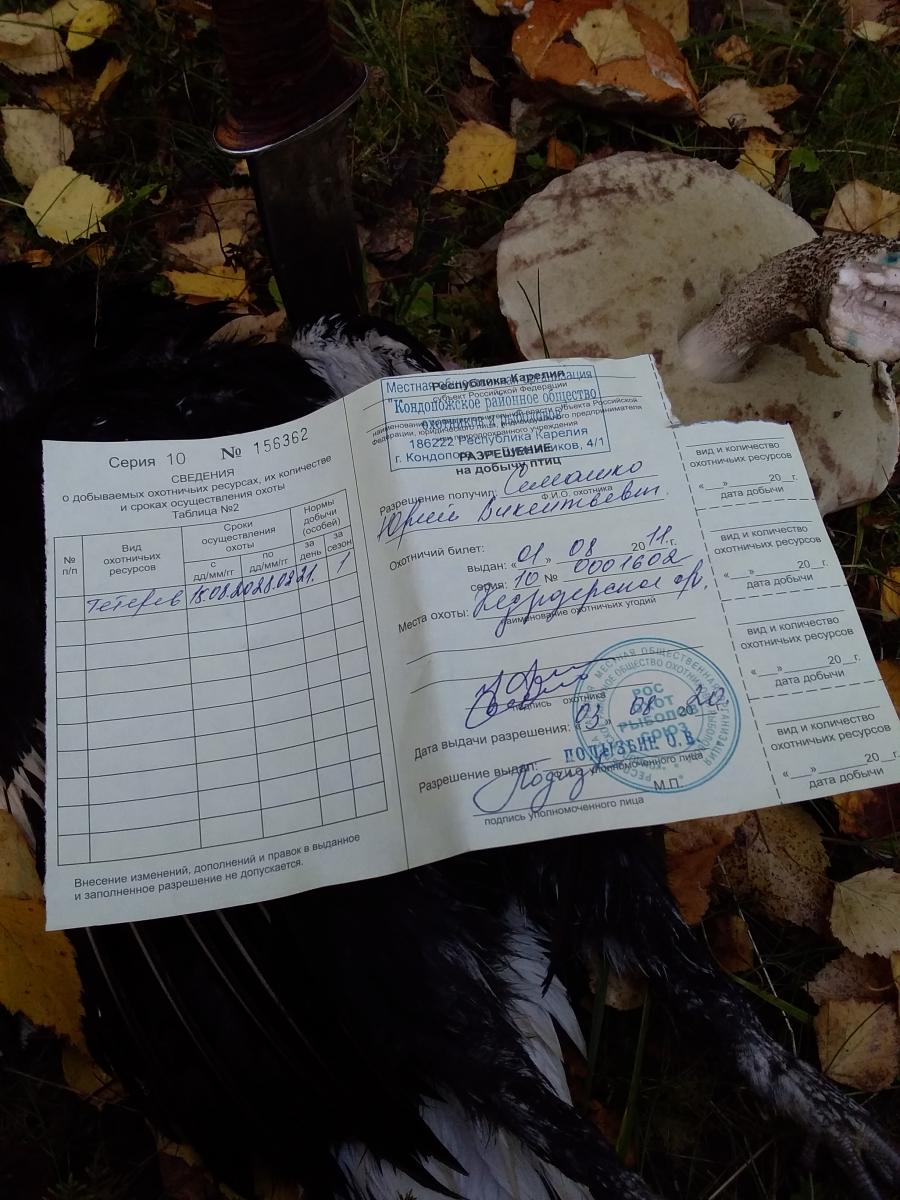 Серия 10 № 156362
СВЕДЕНИЯ
о добываемых охотничьих ресурсах, их количестве
и сроках осуществления охоты
Таблица №2
№ п/п
Вид охотничьих ресурсов
Сроки осуществления охоты
с дд/мм/гг
по дд/мм/гг
Нормы добычи (особей)
за день
за сезон
Тетерев 1
Внесение изменений, дополнений и правок в выданное
и заполненное разрешение не допускается.
Республика Карелия
субъект Российской Федерации
Местная организация
"Кондопожское районное общество
186222 Республика Карелия
4/1
РАЗРЕШЕНИЕ
на добычу птиц
Разрешение получил Симашко
Ф.И.О. охотника
Юрий Викентьевич
Охотничий билет:
выдан: «01» 08 2011 г.
серия: 10 № 0001602
Места охоты:
наименование охотничьих угодий
подпись охотника
Дата выдачи разрешения: «03» 08 2020.
Разрешение выдал:
уполномоченного лица
М.П.
подпись уполномоченного лица
МЕСТНАЯ ОБЩЕСТВЕННАЯ ОРГАНИЗАЦИЯ
РОС
ОХОТ
РЫБОЛОВ
СОЮЗ
вид и количество
охотничьих ресурсов
«__»______20__г.
дата добычи
вид и количество
охотничьих ресурсов
«__»______20__г.
дата добычи
вид и количество
охотничьих ресурсов
«__»______20__г.
дата добычи
вид и количество
охотничьих ресурсов
«__»______20__г.
дата добычи